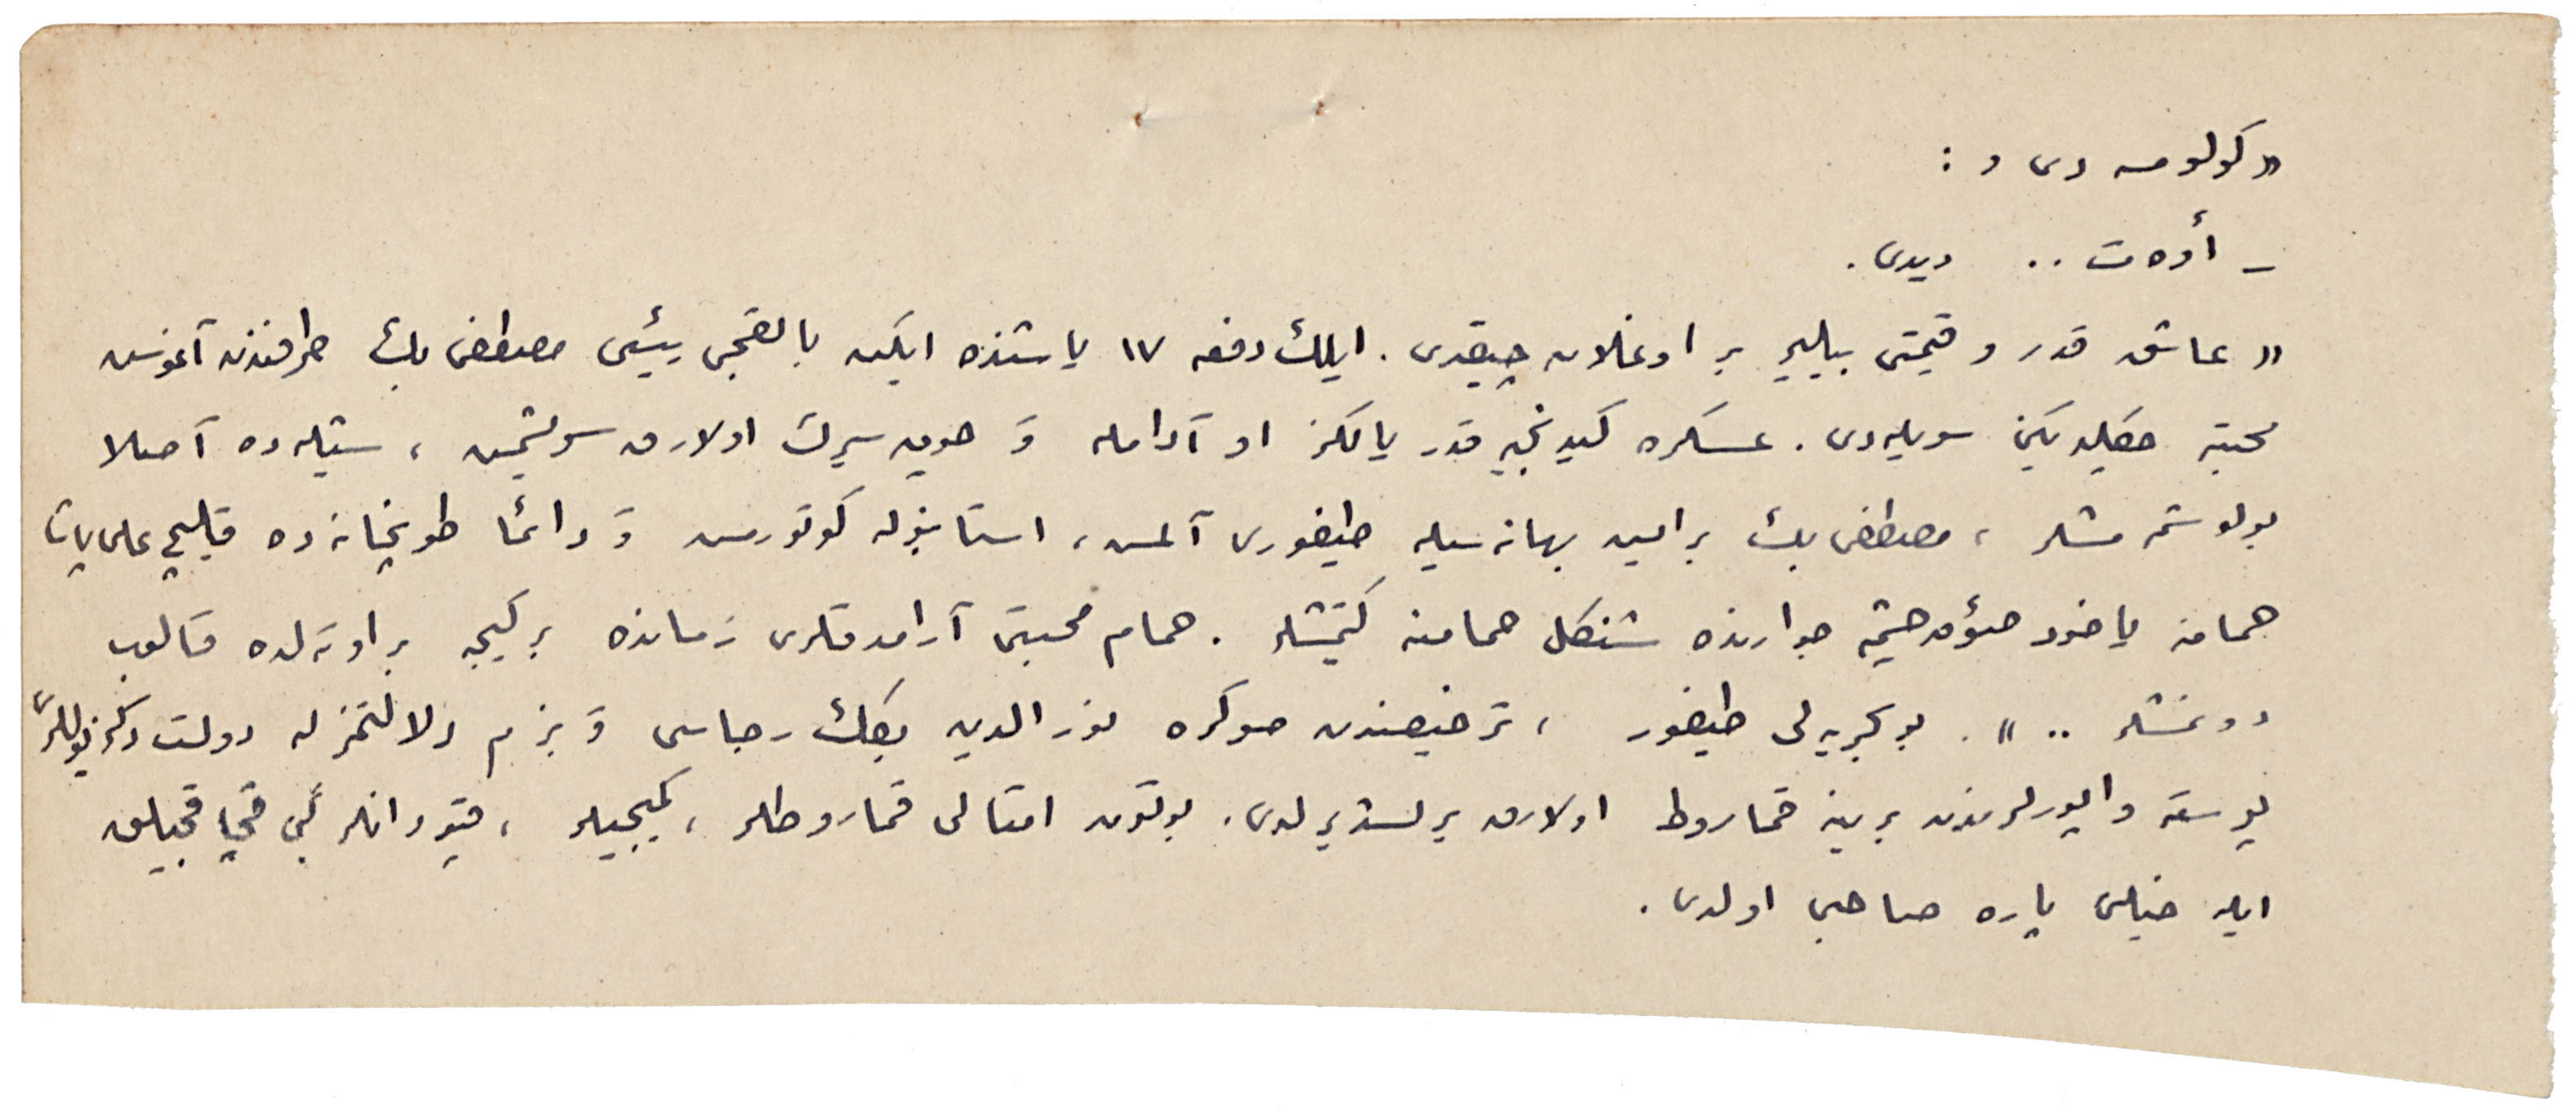 « كولومسه دى و :
ـ أوه ت .. ديدى .
« عاشق قدر و قيمتى بيلير بر اوغلان چيقدى . ايلك دفعه ١٧ ياشنده ايكن بالقجى رئيسى مصطفى بك طرفندن آغوش
محبته چكيلديكنى سويله دى . عسكره كيدنجيه قدر يالكز او آدامله و چوق سيرك اولارق سويشمش ، ستيله ده اصلا
بولوشمه مشلر ، مصطفى بك بر ايش بهانه سيله طيفورى آلمش ، استانبوله كوتورمش و دائما طوپخانه ده قليچ على پاشا
حمامنه ياخود چشمه جوارنده شنكل حمامنه كيتمشلر . حمام محبتى آرامدقلرى زمانده بر كيجه بر اوتلده قالوب
دونمشلر .. » . بو طيفور ، ترخيصندن صوكره نورالدين بكك رجاسى و بزم دلالتمزله دولت دكزيوللرى
پوسته واپورلرندن برينه قماروط اولارق يرلشديرلدى . بوتون امثالى قماروطلر ، كميجيلر ، قپودانلر كبى قاچاقجيلق
ايله خيلى پاره صاحبى اولدى .